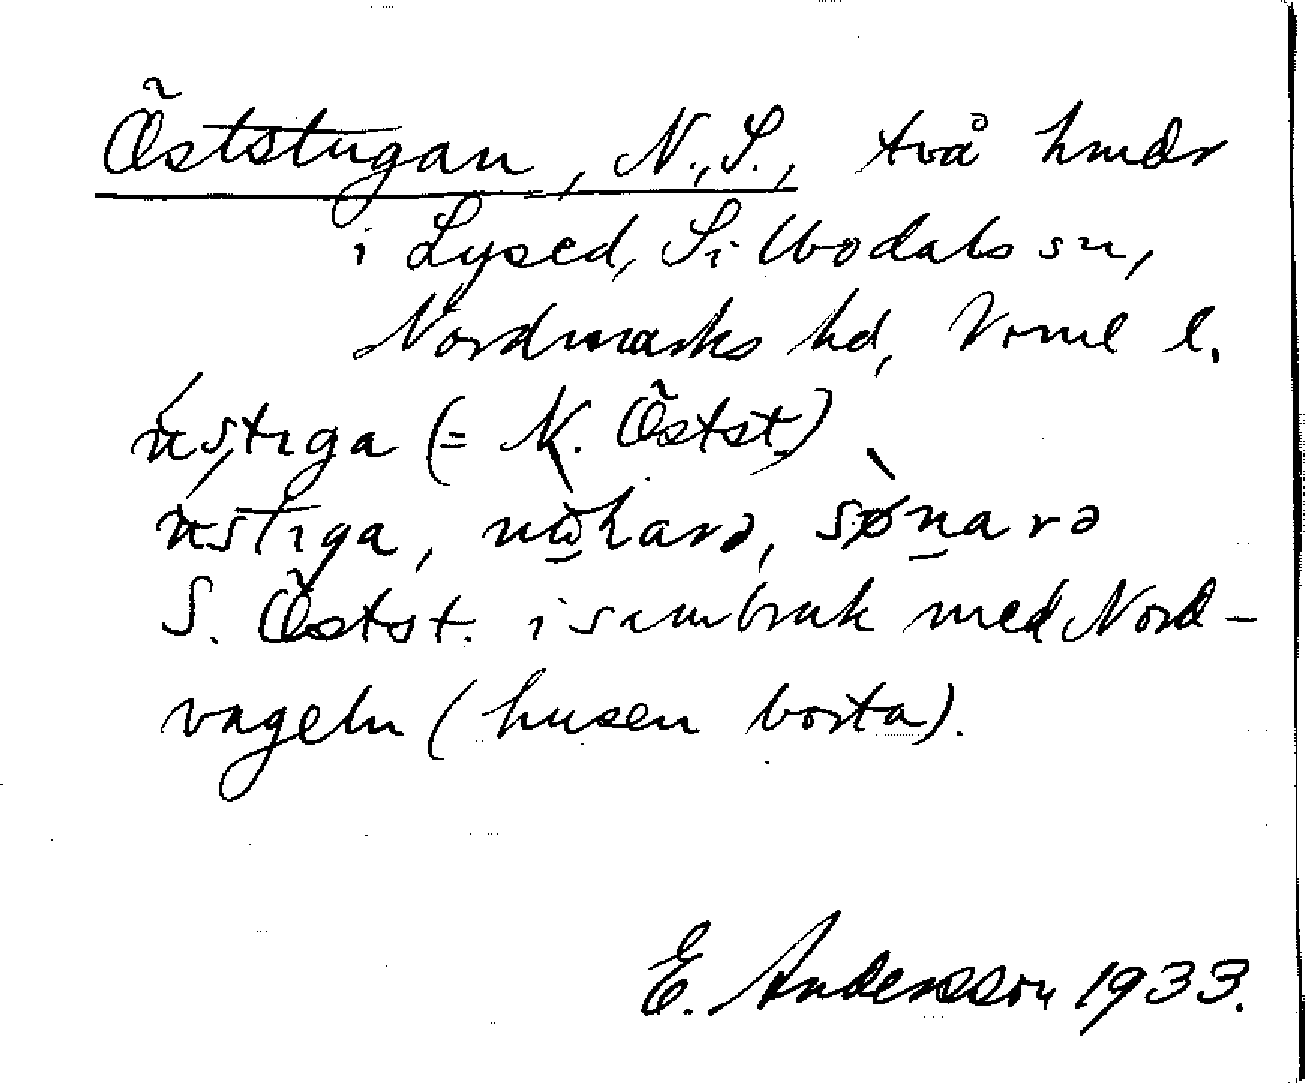 Öststugan, N., S., två hmdr
i Lysed, Silbodals sn,
Nordmarks hd, Vrml l.
(= N. Östst.)
S. Östst. i sambruk med Nord-
vageln (husen borta).
E. Andersson 1933.